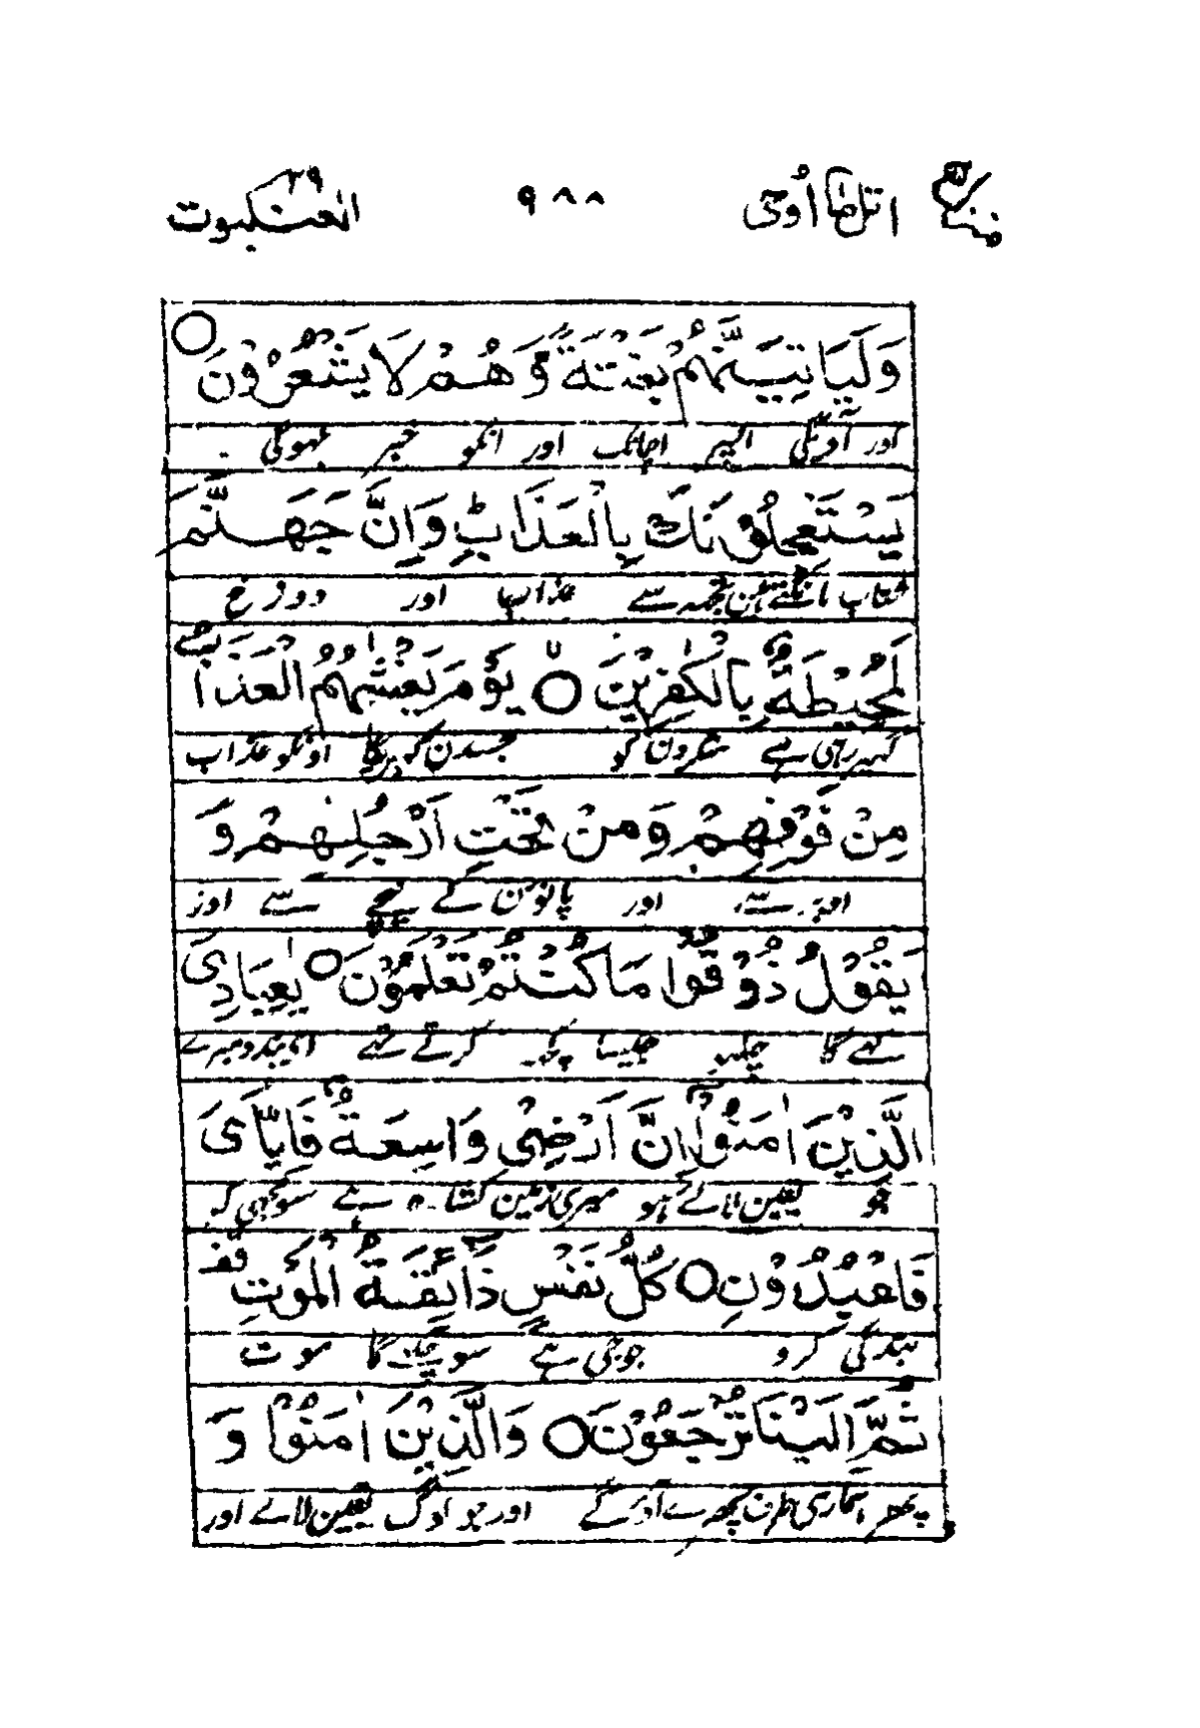 اتل ما أوحی ٩٨٨ العنکبوت ٢٩
وَلَيَاْتِيَنَّهُمْ بَغْتَةً وَّهُمْ لَا يَشْعُرُوْنَ ○
اور آویگی انپر اچانک اور انکو خبر نہوگی
يَسْتَعْجِلُوْنَكَ بِالْعَذَابِ ؕ وَاِنَّ جَهَنَّمَ
شتاب مانگتے ہین تجھسے عذاب اور دوزخ
لَمُحِيْطَةٌۢ بِالْكٰفِرِيْنَ ○ۙ يَوْمَ يَغْشٰهُمُ الْعَذَابُ
گہیر رہی ہے منکرون کو جسدن گہیریگا اونکو عذاب
مِنْ فَوْقِهِمْ وَمِنْ تَحْتِ اَرْجُلِهِمْ وَ
اوپر سے، اور پانون کے نیچے سے اور
يَقُوْلُ ذُوْقُوْا مَا كُنْتُمْ تَعْمَلُوْنَ ○ يٰعِبَادِيَ
کہے گا چکہو جیسا کچھ کرتے تہے اے بندو میرے
الَّذِيْنَ اٰمَنُوْٓا اِنَّ اَرْضِيْ وَاسِعَةٌ فَاِيَّايَ
جو یقین لائے ہو میری زمین کشادہ ہے سو مجہی کو
فَاعْبُدُوْنِ ○ كُلُّ نَفْسٍ ذَآئِقَةُ الْمَوْتِ قف
بندگی کرو جو جی ہے سو چکہے گا موت
ثُمَّ اِلَيْنَا تُرْجَعُوْنَ ○ وَالَّذِيْنَ اٰمَنُوْا وَ
پھر ہماری طرف پھر آؤگے اور جو لوگ یقین لائے اور